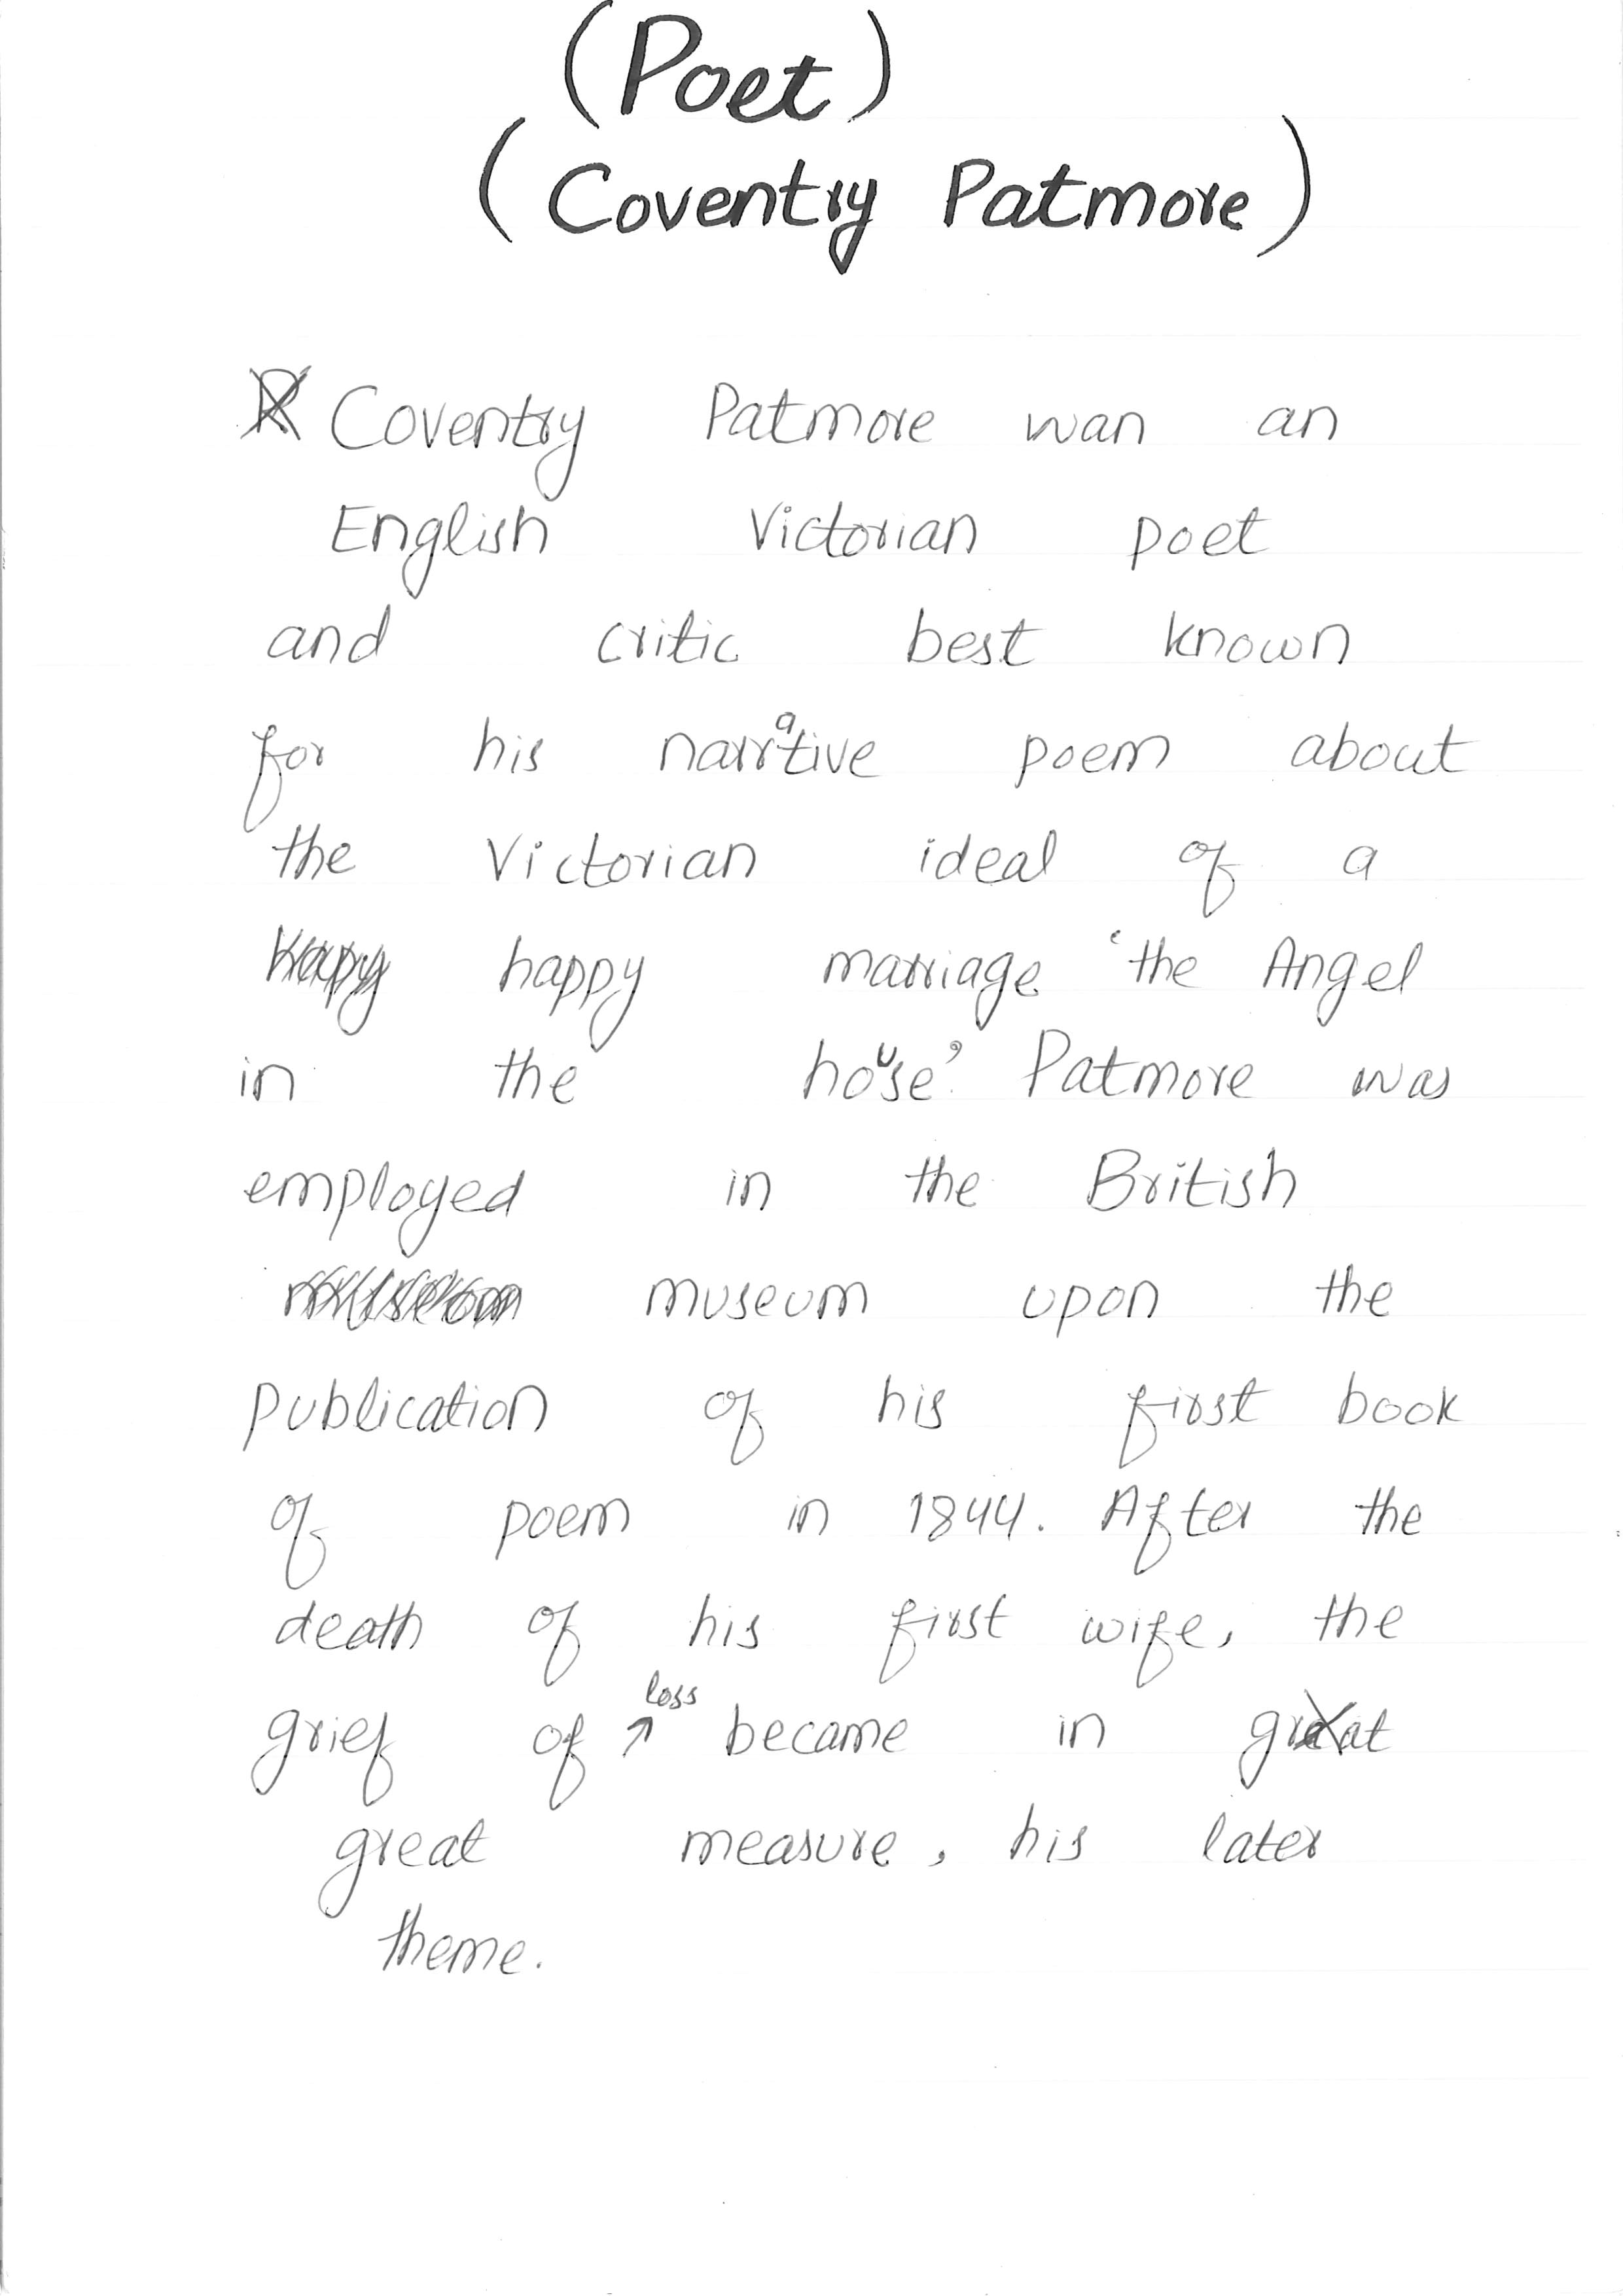 (Poet)
(Coventry Patmore)
Coventry Patmore wan an
English Victorian poet
and critic best known
for his narrative poem about
the Victorian ideal of a
happy marriage 'the Angel
in the house'. Patmore was
employed in the British
museum upon the
publication of his first book
of poem in 1844. After the
death of his first wife, the
grief of loss became in
great measure, his later
theme.